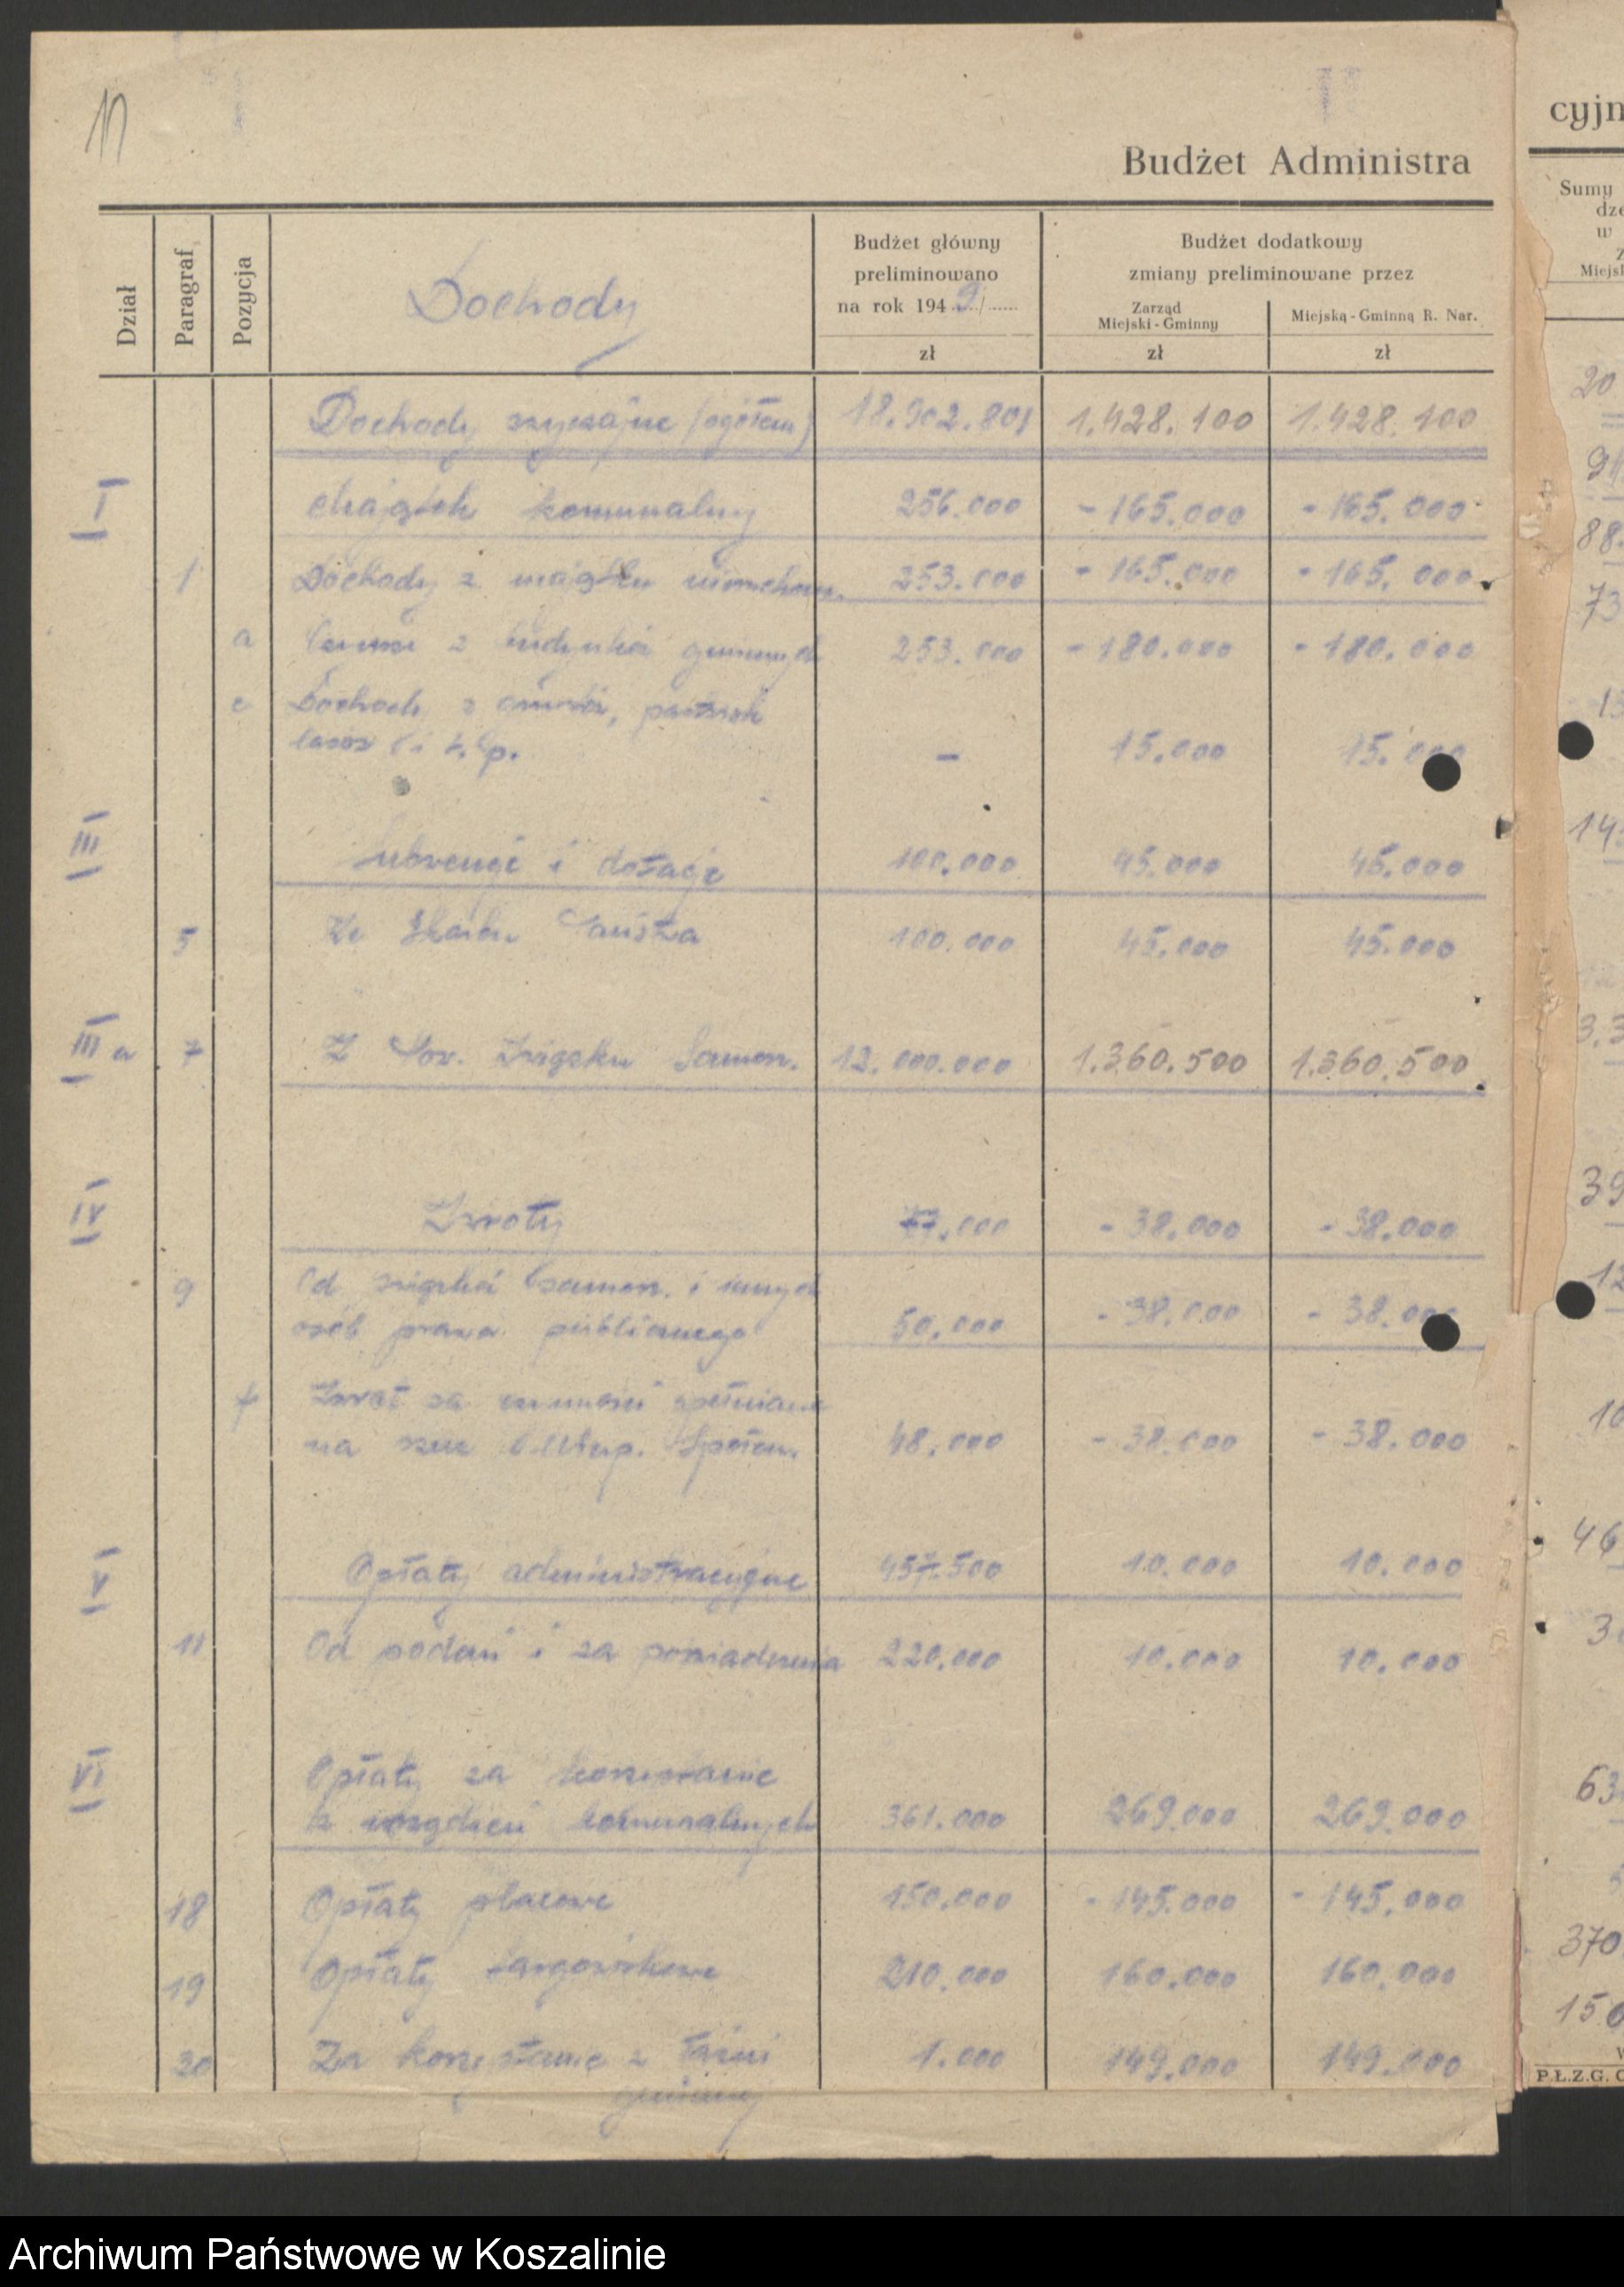 11
Budżet Administra
Dział
Paragraf
Pozycja
Dochody
Budżet główny
preliminowano
na rok 1949
zł
Budżet dodatkowy
zmiany preliminowane przez
Zarząd
Miejski-Gminny
zł
Miejską-Gminną R. Nar.
zł
Dochody zwyczajne (ogółem) 18.902.801 1.428.100 1.428.100
I Majątek komunalny 256.000 - 165.000 - 165.000
1 Dochody z majątku nieruchom. 253.000 - 165.000 - 165.000
a Czynsze z budynków gminnych 253.000 - 180.000 - 180.000
c Dochody z gruntów, pastwisk
lasów i t.p. - 15.000 15.000
III Subwencje i dotacje 100.000 45.000 45.000
5 Ze Skarbu Państwa 100.000 45.000 45.000
III a 7 Z Pow. Związku Samorz. 12.000.000 1.360.500 1.360.500
IV Zwroty 77.000 - 38.000 - 38.000
9 Od związków samorz. i innych
osób prawa publicznego 50.000 - 38.000 - 38.000
f Zwrot za czynności spełniane
na rzecz Ubezp. Społecz. 48.000 - 38.000 - 38.000
V Opłaty administracyjne 457.500 10.000 10.000
11 Od podań i za poświadczenia 220.000 10.000 10.000
VI Opłaty za korzystanie
z urządzeń komunalnych 361.000 269.000 269.000
18 Opłaty placowe 150.000 - 145.000 - 145.000
19 Opłaty targowiskowe 210.000 160.000 160.000
20 Za korzystanie z łaźni 1.000 149.000 149.000
gminnej
cyjn
Sumy
dze
w
Z
Miejsk
20
91
88.
73
13
14.
3.3
39
12
10
46
3
63
5
370
150
W
P.Ł.Z.G. O
Archiwum Państwowe w Koszalinie